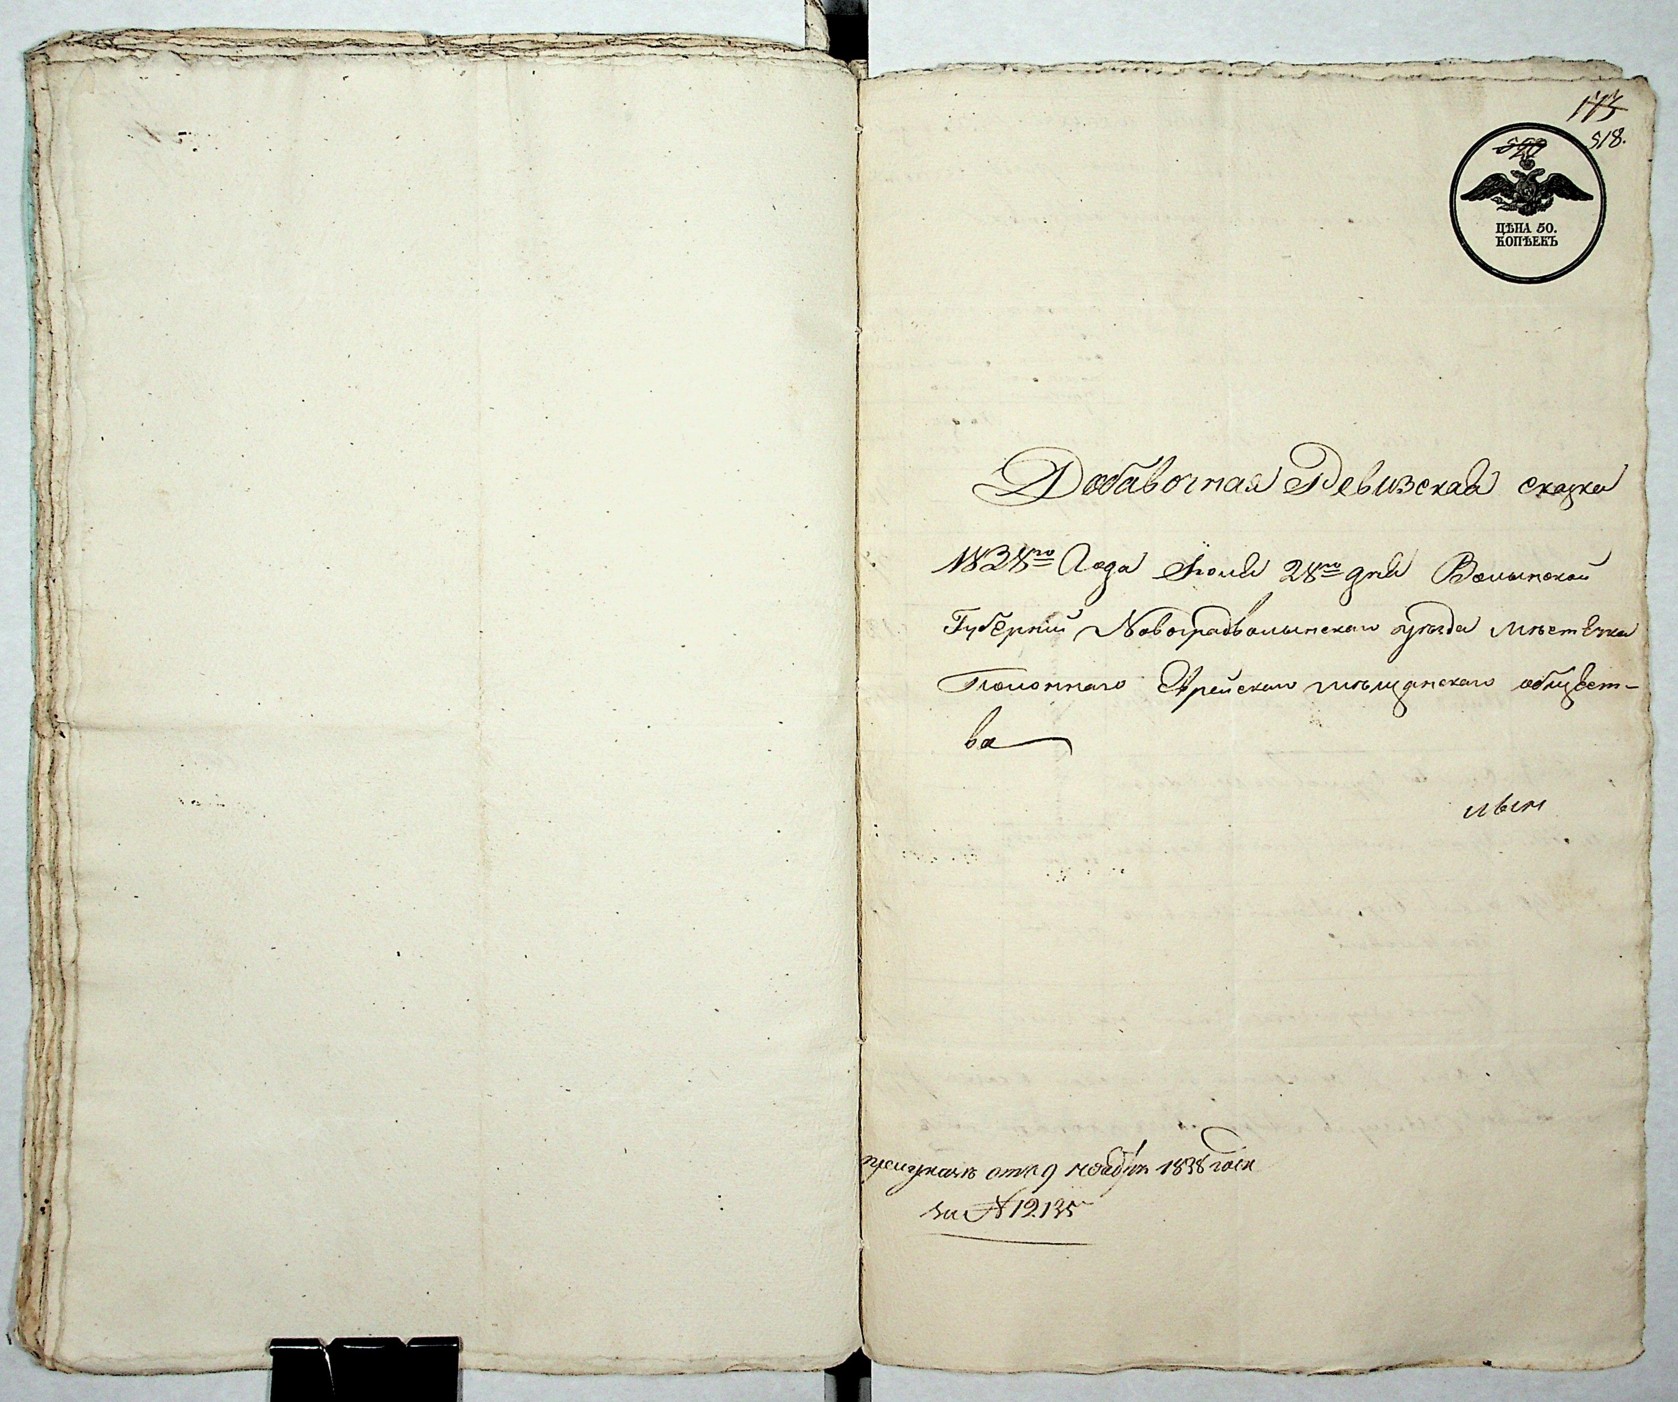 173
518.
520
ЦѢНА 50.
КОПѢЕКЪ
Добавочная Ревизская сказка
1838го Года Июля 28го дня Волынской
Губернии Новоградволынскаго уѣзда мѣстечка
Полоннаго Еврейскаго мѣщанскаго общест-
ва
при указѣ отъ 9 ноября 1838 года
за № 12135